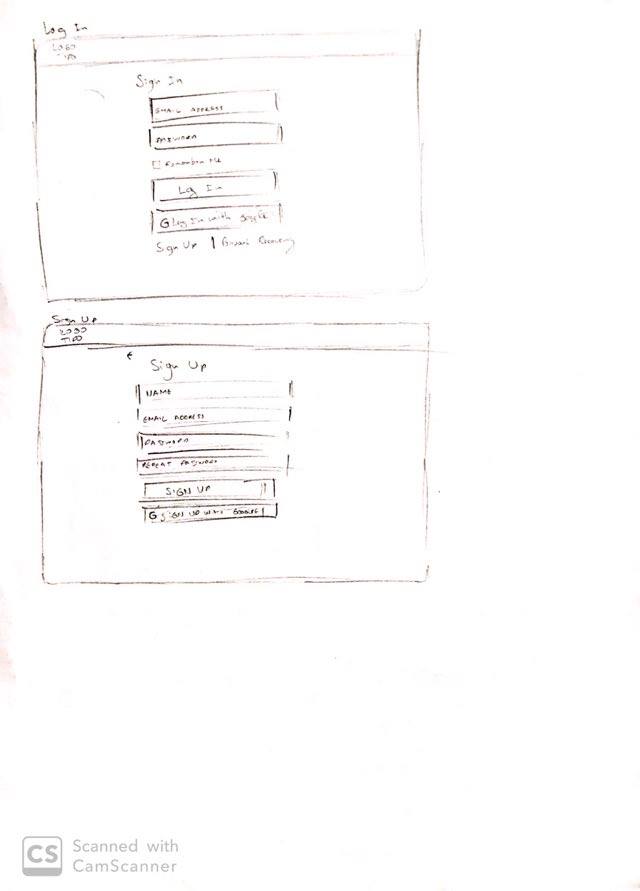 Log In
LOGO
TIPO
Sign In
EMAIL ADDRESS
PASSWORD
Remember Me
Log In
G Log In with Google
Sign Up | Recovery
Sign Up
LOGO
TIPO
←
Sign Up
NAME
EMAIL ADDRESS
PASSWORD
REPEAT PASSWORD
SIGN UP
G SIGN UP WITH GOOGLE
CS Scanned with
CamScanner